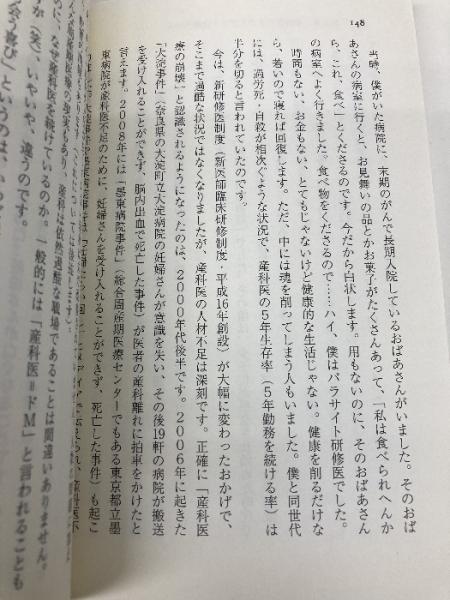 148
当時、僕がいた病院に、末期のがんで長期入院しているおばあさんがいました。そのおば
あさんの病室に行くと、お見舞いの品とかお菓子がたくさんあって、「私は食べられへんか
ら、これ、食べ」とくださるのです。今だから白状します。用もないのに、そのおばあさん
の病室へよく行きました。食べ物をくださるので……ハイ、僕はパラサイト研修医でした。
時間もない、お金もない、とてもじゃないけど健康的な生活じゃない。健康を削るだけな
ら、若いので寝れば回復します。ただ、中には魂を削ってしまう人もいました。僕と同世代
には、過労死・自殺が相次ぐような状況で、産科医の5年生存率（5年勤務を続ける率）は
半分を切ると言われていたのです。
今は、新研修医制度（新医師臨床研修制度・平成16年創設）が大幅に変わったおかげで、
そこまで過酷な状況ではなくなりましたが、産科医の人材不足は深刻です。正確に「産科医
療の崩壊」と認識されるようになったのは、2000年代後半です。2006年に起きた
「大淀事件」（奈良県の大淀町立大淀病院の妊婦さんが意識を失い、その後19軒の病院が搬送
を受け入れることができず、脳内出血で死亡した事件）が医者の産科離れに拍車をかけたと
言えます。2008年には「墨東病院事件」（総合周産期医療センターでもある東京都立墨
東病院が産科医不足のために、妊婦さんを受け入れることができず、死亡した事件）も起こ
産科は依然過酷な職場であることは間違いありません。
なぜ産科医を続けているのか。一般的には「産科医＝ドM」と言われることも
（笑）、いやいや、違うのです。
会う喜び」というのは、